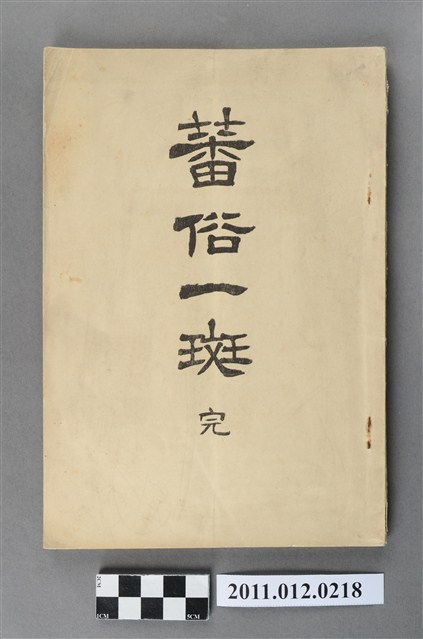 蕃俗一斑
完
2CM
1CM
5CM
2011.012.0218